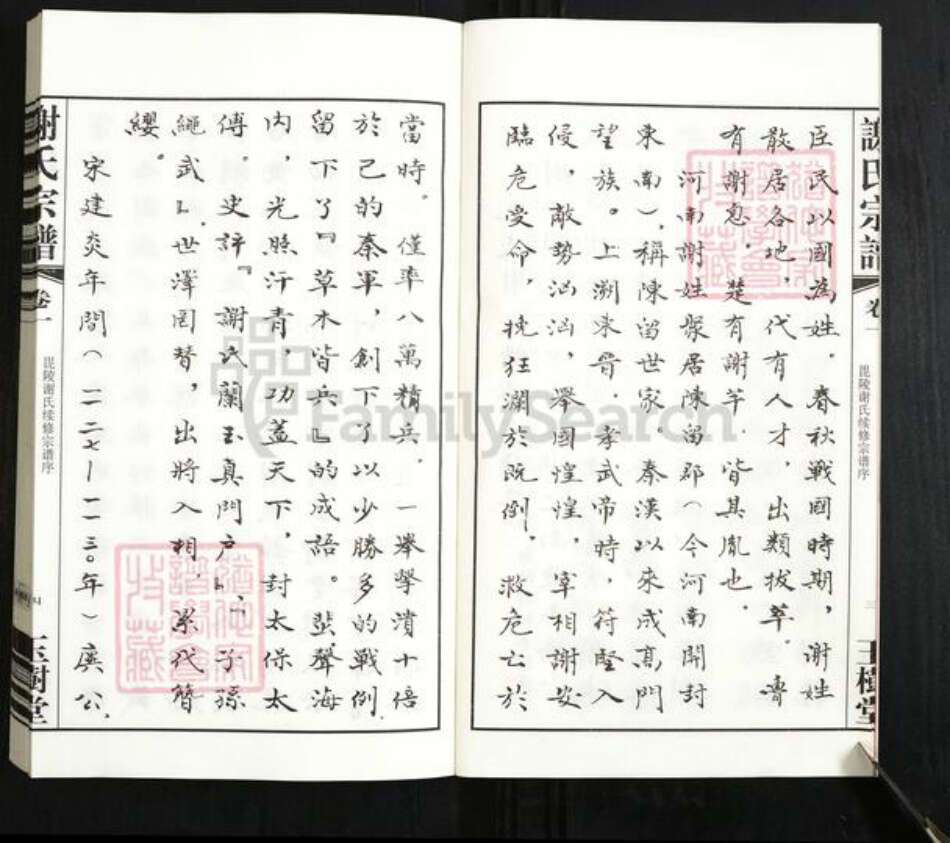 謝氏宗譜
卷一
毘陵谢氏续修宗谱序
玉樹堂
臣民以國為姓。春秋戰國時期，谢姓
散居各地，代有人才，出類拔萃。齊
有謝忽，楚有謝竿。皆其胤也。
河南謝姓聚居陳留郡（今河南開封
東南），稱陳留世家。秦漢以來成高門
望族。上溯東晉，孝武帝時，符堅入
侵，敵勢汹汹，舉國惶惶，宰相謝安
臨危受命，挽狂瀾於既倒，救危亡於
當時。僅率八萬精兵，一舉擊潰十倍
於己的秦軍，創下了以少勝多的戰例，
留下了『草木皆兵』的成語。蜚聲海
内，光照汗青，功蓋天下，封太保太
傅。史評『謝氏蘭玉真門户』，『子孫
繩武』。世澤罔替，出將入相，累代簪
纓。
宋建炎年間（一一二七—一一三〇年）廣公，
謝氏宗譜
卷一
毘陵谢氏续修宗谱序
四
玉樹堂
FamilySearch